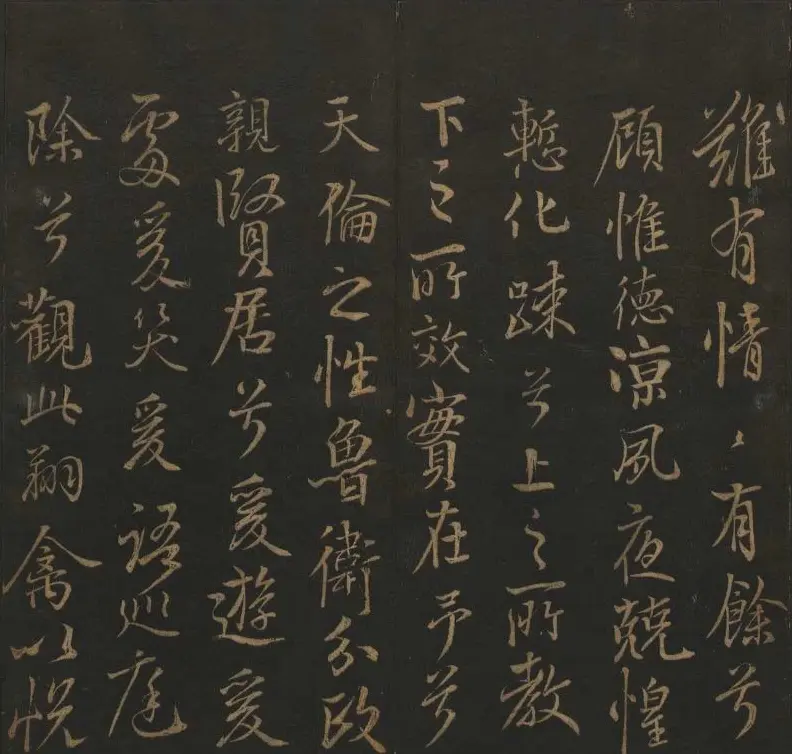 難有情〻有餘兮
顧惟德涼夙夜兢惶
慙化踈兮上之所教
下之所效實在予兮
天倫之性魯衛分政
親賢居兮爰遊爰
處爰笑爰語巡庭
除兮觀此翔禽以悅